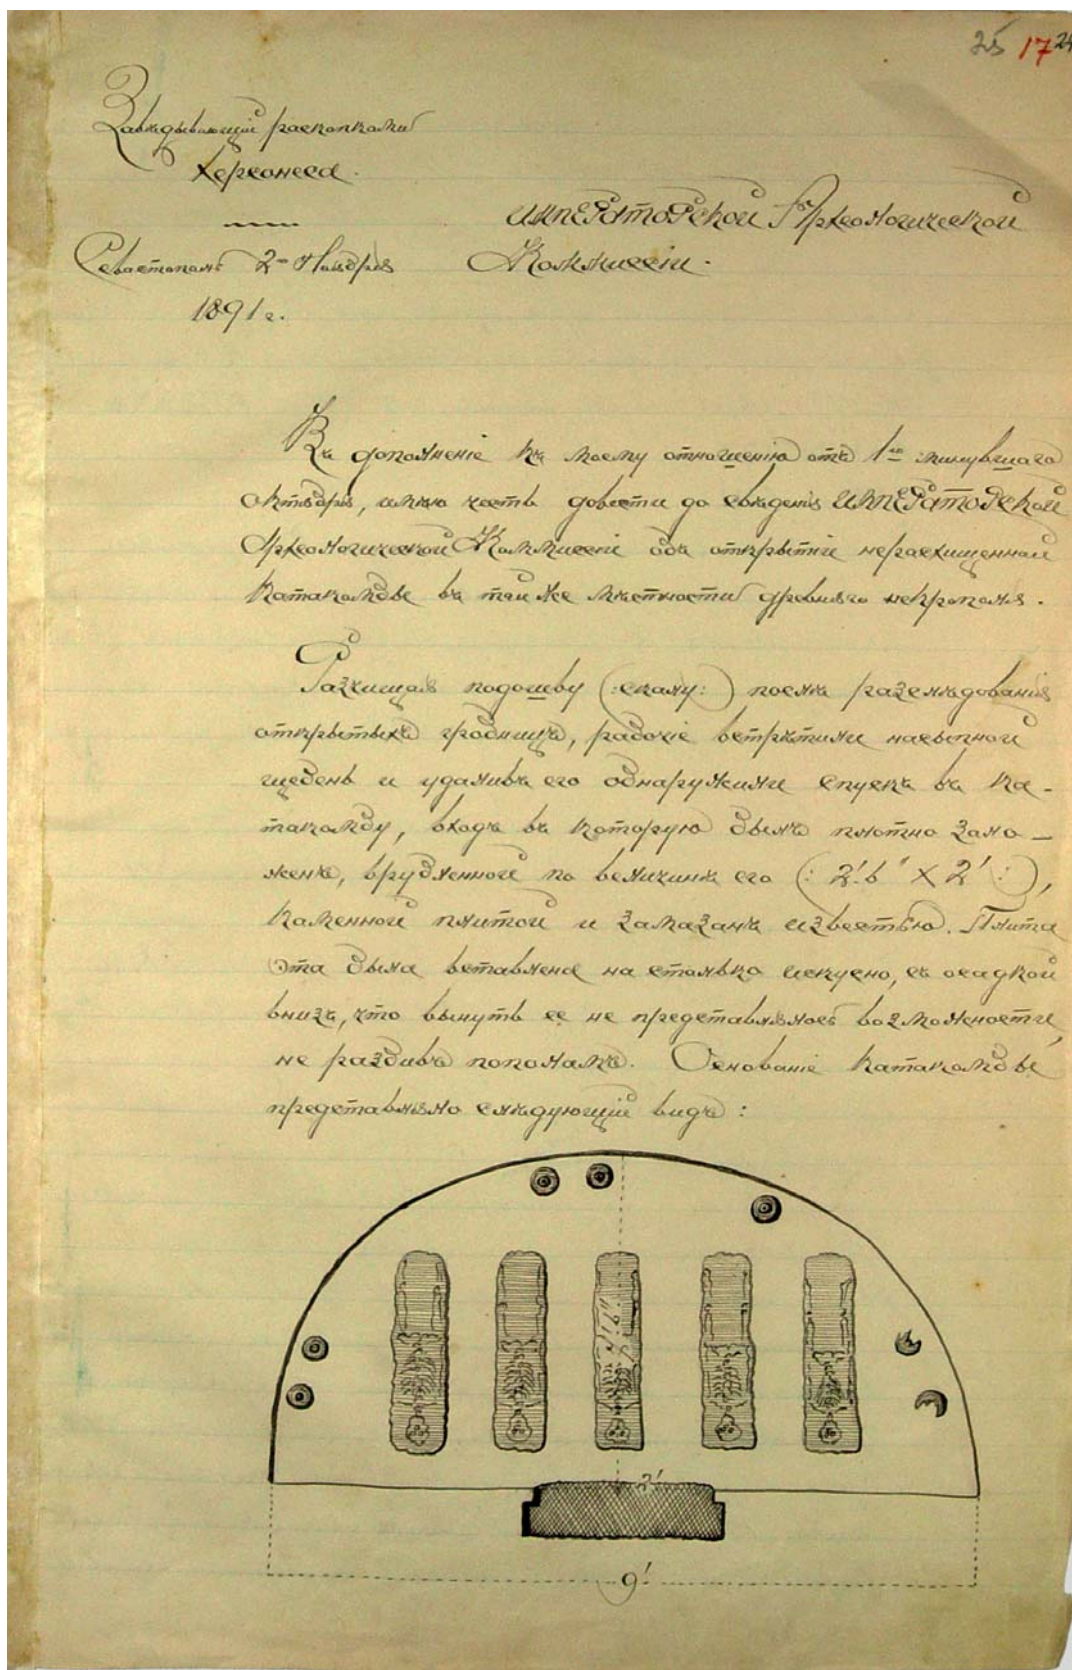 25 17 24
Завѣдывающій раскопками
Херсонеса.
Севастополь 2го Ноября
1891 г.
ИМПЕРАТОРСКОЙ Археологической
Коммиссіи.
Въ дополненіе къ моему отношенію отъ 1го минувшаго
Октября, имѣю честь довести до свѣденія ИМПЕРАТОРСКОЙ
Археологической Коммиссіи объ открытіи нерасхищенной
катакомбы въ той же мѣстности древняго некрополя.
Разчищая подошву (:скалу:) послѣ разслѣдованія
открытыхъ гробницъ, рабочіе встрѣтили насыпной
щебень и удаливъ его обнаружили спускъ въ ка-
такомбу, входъ въ которую былъ плотно зало-
женъ, врубленной по величинѣ его (: 2'.6" X 2' :),
каменной плитой и замазанъ известью. Плита
эта была вставлена на столько искусно, съ осадкой
внизъ, что вынуть ее не представлялось возможности,
не разбивъ пополамъ. Основаніе катакомбы
представляло слѣдующій видъ:
2'
9'